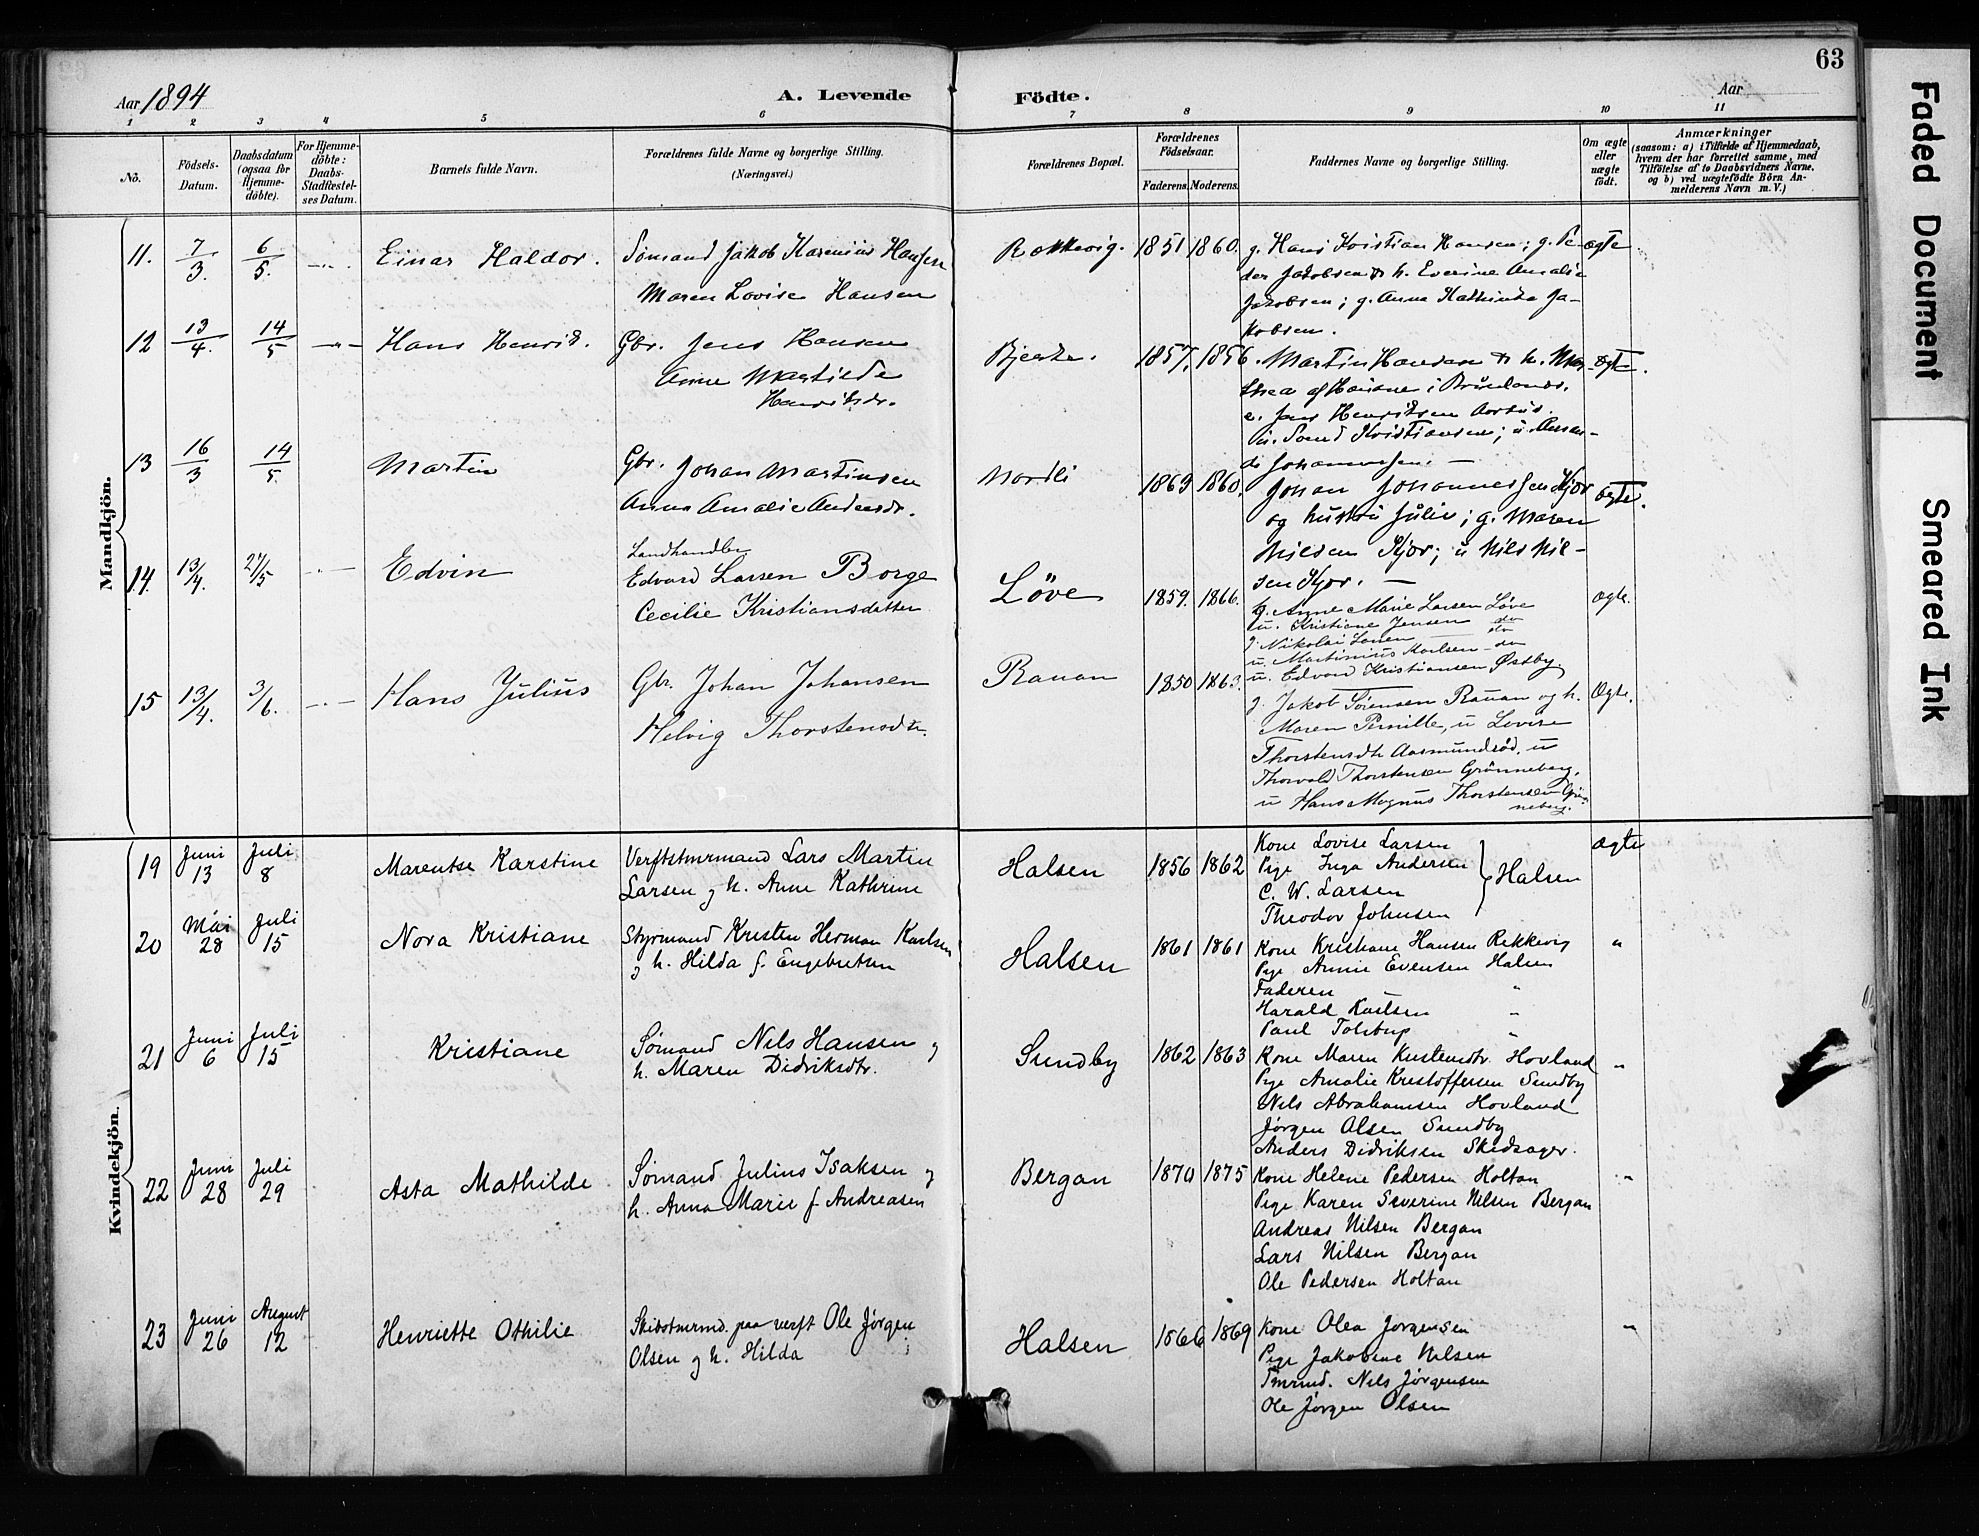 63
Aar 1894
A. Levende Födte.
Aar
1 2 3 4 5 6 7 8 9 10 11
No.
Födsels-Datum.
Daabsdatum (ogsaa for Hjemme-döbte).
For Hjemme-döbte: Daabs-Stadfæstel-ses Datum.
Barnets fulde Navn.
Forældrenes fulde Navne og borgerlige Stilling.
(Næringsvei.)
Forældrenes Bopæl.
Forældrenes Födselsaar.
Faderens. Moderens.
Faddernes Navne og borgerlige Stilling.
Om ægte eller uægte födt.
Anmærkninger
(saasom: a) i Tilfælde af Hjemmedaab,
hvem der har forrettet samme, med
Tilföielse af to Daabsvidners Navne,
og b) ved uægtefödte Börn An-
melderens Navn m. V.)
Mandkjön.
11. 7/3. 6/5. Einar Haldor. Sømand Jakob Hansen
Maren Lovise Hansen
Rekkevig. 1851 1860.
g. Hans Kristian Hansen; g. Pe-
der Jakobsen & h. Everine Amalie
Jakobsen; g. Anna Kathinka Ja-
kobsen.
ægte
12 13/4. 14/5 Hans Henrik. Gbr. Jens Hansen
Anne Mathilde
Henriksdr.
Bjerke. 1857. 1856.
Martin Hansen & h. Mar-
thea af Hansene i Brunlanes.
e. Jens Henriksen Aarhus.
u. Kristiansen; u. Aman-
da Johannessen. —
ægte.
13 16/3 14/5. Martin Gbr. Johan Martinsen
Anna Amalie Andersdr.
Nordli 1869 1860.
Johan Johannessen Kjær
og hustru Julie; g. Maren
Nilsen Kjær; u Nils Nil-
sen Kjær. —
ægte.
14. 13/4. 27/5 Edvin Landhandler
Edvard Larsen Borge
Cecilie Kristiansdatter
Løve 1859. 1866.
g. Anne Marie Larsen Løve
u. Kristiane Jensen do
g. Nikolai Larsen — do
u. Martinius Karlsen — do
u. Edvard Kristiansen Østby.
Ægte.
15 13/4. 3/6. Hans Julius Gbr. Johan Johansen
Helvig Thorstensdtr.
Rauan 1850 1863.
g. Jakob Sørensen Rauan og h.
Maren Pernille, u Lovise
Thorstensdtr Aasmundrød, u
Thorvald Thorstensen Grønneberg,
u Hans Magnus Thorstensen Grøn-
neberg.
Ægte.
Kvindekjön.
19 Juni 13 Juli 8 Marentse Karstine Verftstmrmand Lars Martin
Larsen og h. Anne Kathrine
Halsen 1856 1862
Kone Lovise Larsen
Pige Inga Andersen
C. W. Larsen
Theodor Johnsen
Halsen
ægte
20 Mai 28 Juli 15 Nora Kristiane Styrmand Kristen Herman Karlsen
og h. Hilda f. Engebretsen
Halsen 1861 1861
Kone Kristiane Hansen Rekkevig
Pige Annie Evensen Halsen
Faderen "
Harald Karlsen "
Paul Tolstup "
"
21 Juni 6 Juli 15 Kristiane Sømand Nils Hansen og
h. Maren Didriksdtr.
Sundby 1862 1863
Kone Maren Kristensdtr. Hovland
Pige Amalie Kristoffersen Sundby
Nils Abrahamsen Hovland
Jørgen Olsen Sundby
Anders Didriksen Skedsager.
"
22 Juni 28 Juli 29 Asta Mathilde Sømand Julius Isaksen og
h. Anna Marie f Andreasen
Bergan 1870 1875
Kone Helene Pedersen Holtan
Pige Karen Severine Nilsen Bergan
Andreas Nilsen Bergan
Lars Nilsen Bergan
Ole Pedersen Holtan
"
23 Juni 26 August 12 Henriette Othilie Skibstmrmd. paa verft Ole Jørgen
Olsen og h. Hilda
Halsen 1866 1869
Kone Olea Jørgensen
Pige Jakobine Nilsen
Tmrmd. Nils Jørgensen
Ole Jørgen Olsen
"
Faded Document
Smeared Ink